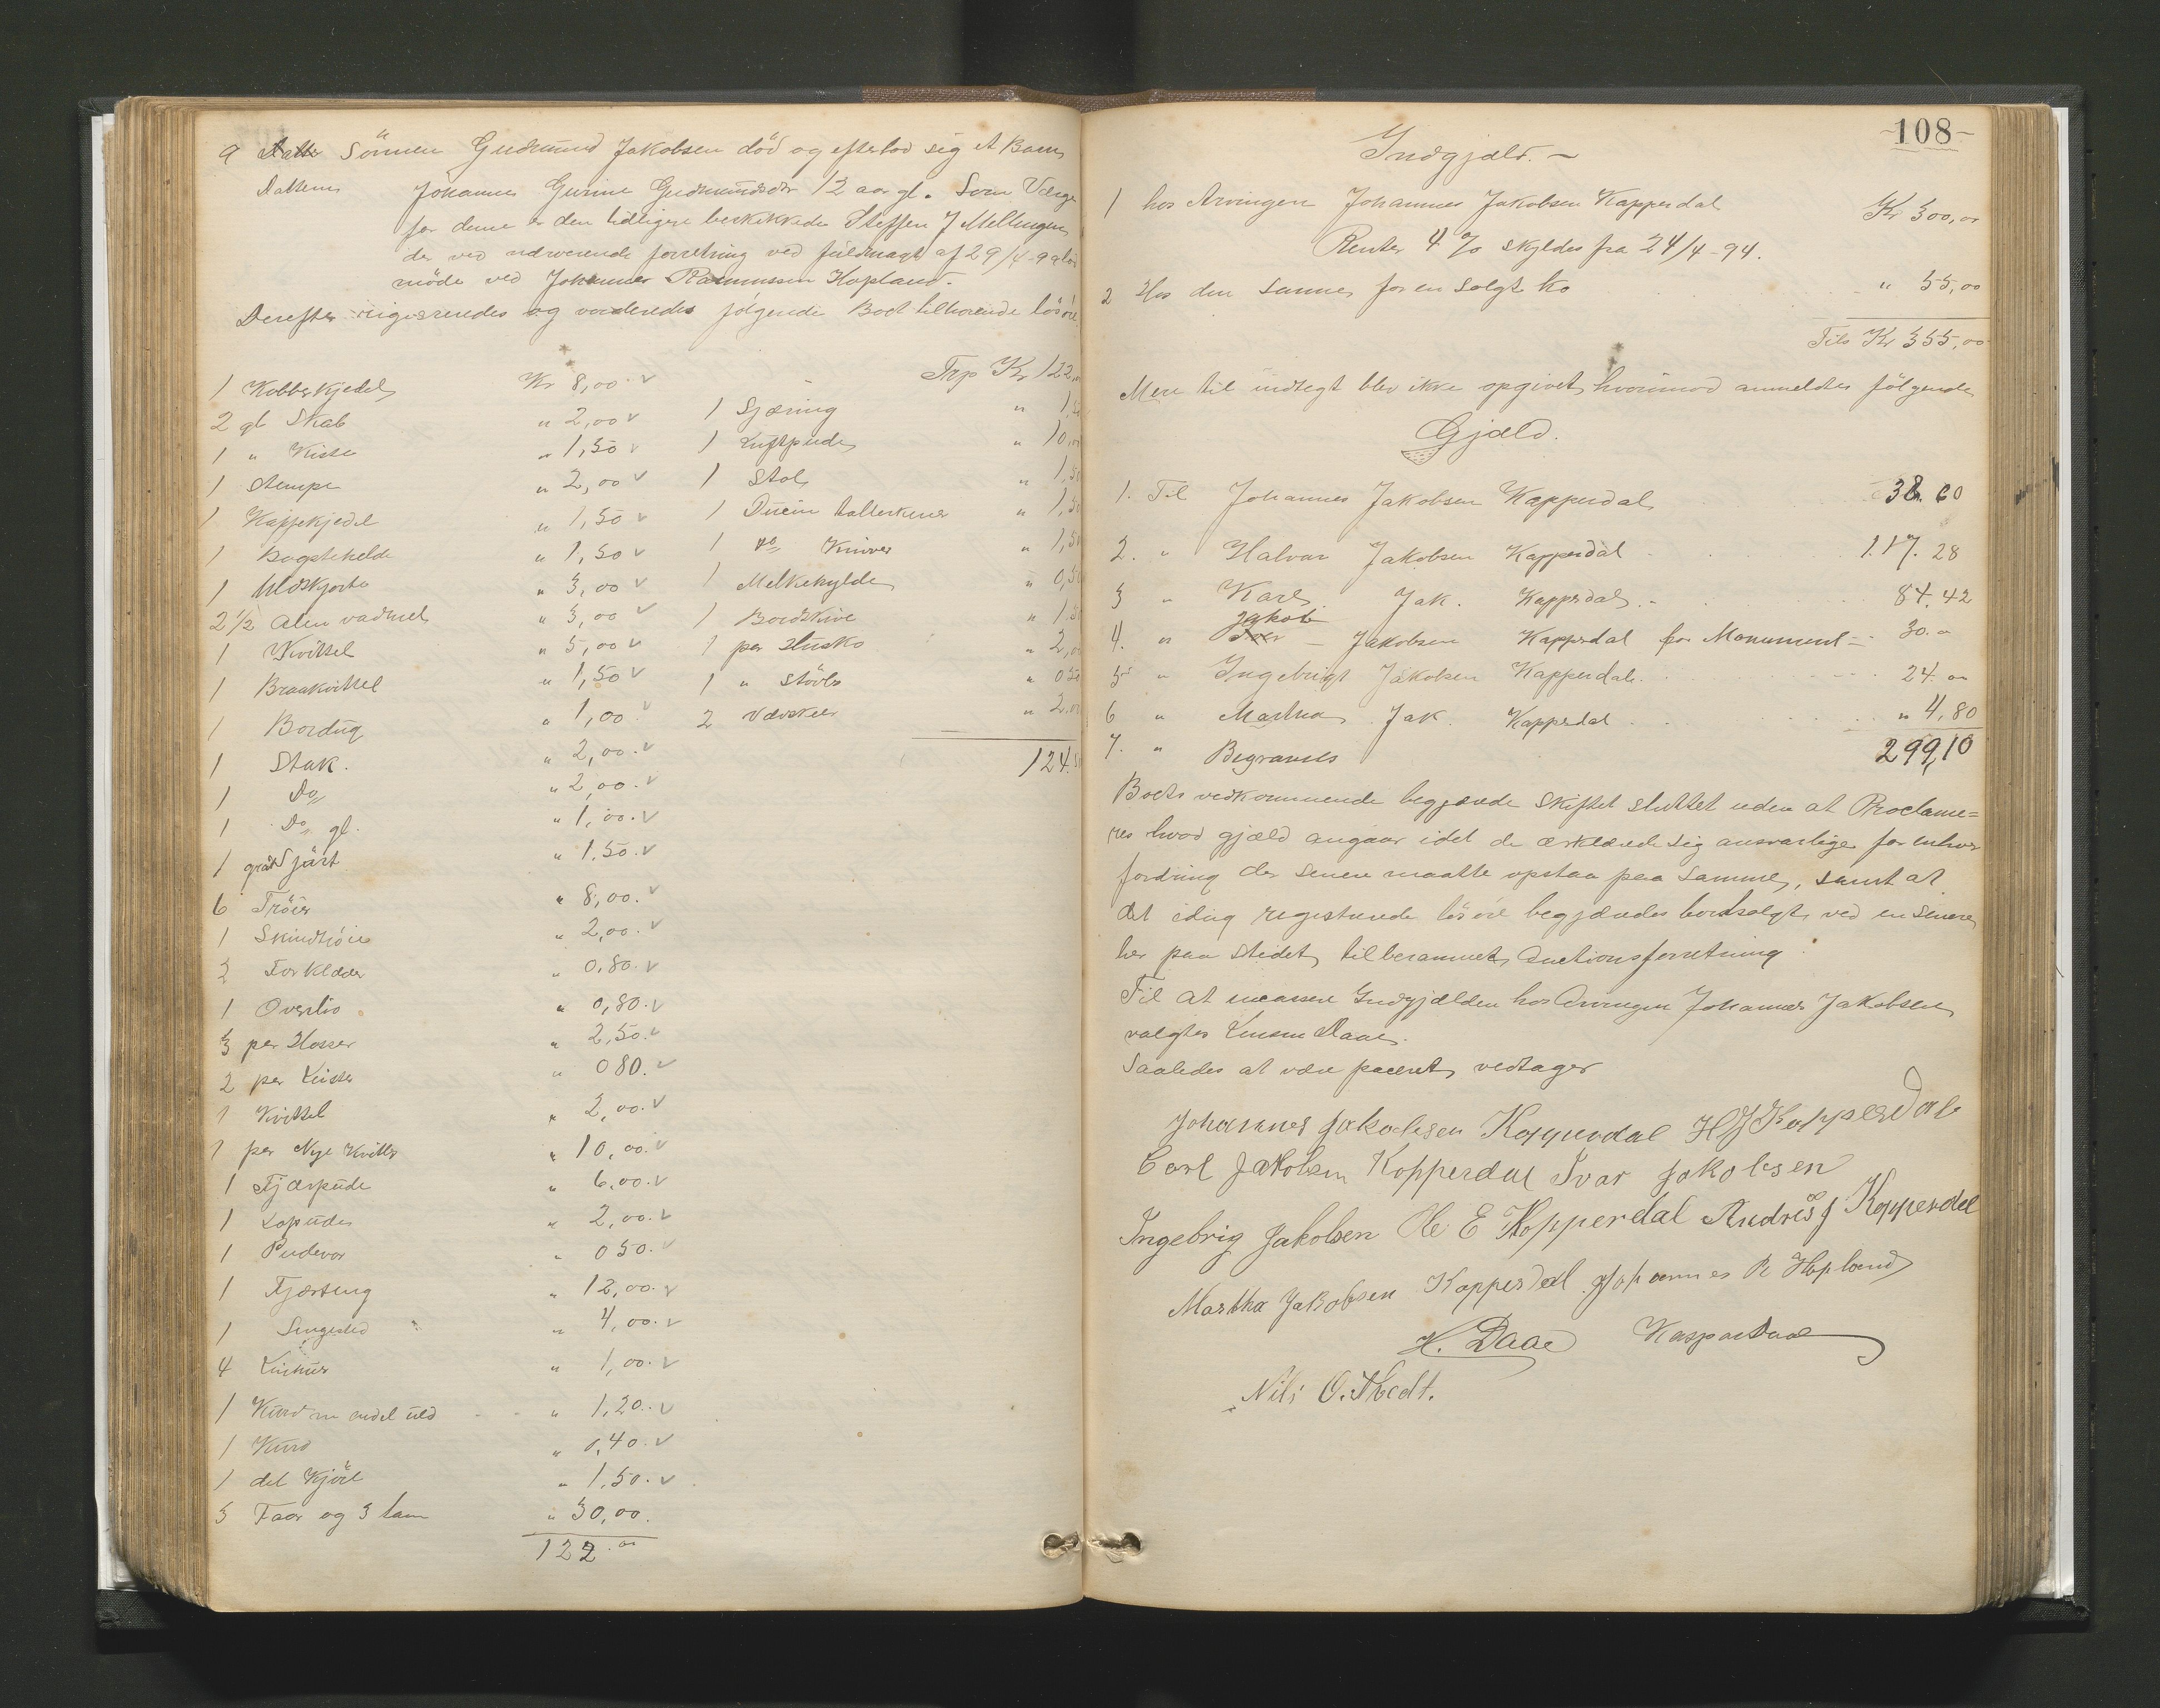 9 Sönnen Gudmund Jakobsen död og efterlod sig et Barn
Datteren Johanne Gurine Gudmundsdr 12 aar gl. Som Værge
for denne er den tidligere beskikkede Steffen J Mellingen
der ved nærværende forretning ved fuldmagt af 29/4-99
möde ved Johannes Rasmussen Hopland.
Derefter registreredes og vurderedes følgende Boet tilhørende lösöre
Trp Kr 122,00
1 Kobberkjedel Kr 8,00
2 gl Skab " 2,00
1 " Kiste " 1,50
1 Stampe " 2,00
1 Kaffekjedel " 1,50
1 Bagstehelde " 1,50
1 Uldskjorte " 3,00
2 1/2 Alen vadmel " 3,00
1 Kvittel " 5,00
1 Braakvittel " 1,50
1 Bordug " 1,00
1 Stak. " 2,00
1 Do " 2,00
1 Do gl. " 1,00
1 " 1.50
6 Tröier " 8,00
1 Skindtröie " 2,00
3 Forklæder " 0,80
1 Overliv " 0,80
3 par Hosser " 2,50
2 par Luster " 080
1 Kvittel " 2,00
1 par Nye Kvitler " 10,00
1 Fjærpude " 6,00
1 Lopude " 2,00
1 Pudevar " 050
1 Fjærteng " 12,00
1 Sengested " 4,00
4 " 1,00
1 Kurv m endel uld " 1,20
1 Kurv " 0,40
1 del Kjöll " 1,50
3 Faar og 3 lam " 30,00
122.00
1 Sjæring "
1 Luftpude " 10,00
1 Stol " 1,50
1 Dusin tallerkener " 1,50
1 do Kniver " 1,50
1 Melkehylde " 0,50
1 Bordskive "
1 par Husko " 2,00
1 " Stövler " 050
2 Vævskeer " 2,00
124.
108
Indgjæld.
1 hos Arvingen Johannes Jakobsen Kapperdal Kr 300,00
Renter 4 % skyldes fra 24/4-94.
2 Hos den Samme for en Solgt Ko " 55,00
Tils Kr 355,00
Mere til indtegt blev ikke opgivet, hvorimod anmeldtes følgende
Gjæld.
1. Til Johannes Jakobsen Kapperdal 38.60
2. " Halvar Jakobsen Kapperdal 117.28
3 " Karl Jak. Kapperdal 84.42
4. " Jakob Jakobsen Kapperdal for Monument 30.00
5 " Ingebrigt Jakobsen Kapperdal. 24.00
6 " Martha Jak. Kapperdal " 4,80
7. " Begravels 299,10
Boets vedkommende begjærede Skiftet sluttet uden at Proclame=
res hvad gjæld angaar idet de erklærede sig ansvarlige for enhver
fordring der Senere maatte opstaa paa Samme, samt at
det idag registrerede lösöre begjæredes bortsolgt ved en Senere
her paa Stedet tilberammet Auctionsforretning
Til at incassere Indgjælden hos Arvingen Johannes Jakobsen
valgtes Lensm Daae.
Saaledes at være passeret vedtager
Johannes Jakobsen Kopperdal H J Kopperdal
Carl Jakobsen Kopperdal Ivar Jakobsen
Ingebrig Jakobsen Ole E Kopperdal Andreas J Kopperdal
Martha Jakobsen Kopperdal Johannes R Hopland
H. Daae Kaspar Daae
Nils O. Abedt.